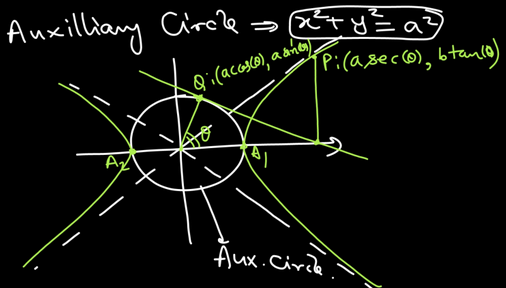 Auxilliary Circle ⇒ x²+y²=a²
Q:(acos(θ), asinθ)
P:(a sec(θ), b tan(θ))
θ
A₂
A₁
Aux. Circle.